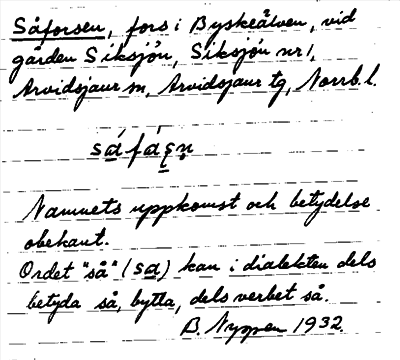 Såforsen, fors i Byskeälven, vid
gården Siksjön, Siksjön nr 1,
Arvidsjaur sn, Arvidsjaur tg, Norrb. l.
Namnets uppkomst och betydelse
obekant.
Ordet "så" (sa) kan i dialekten dels
betyda så, bytta, dels verbet så.
B. Nyppen 1932.